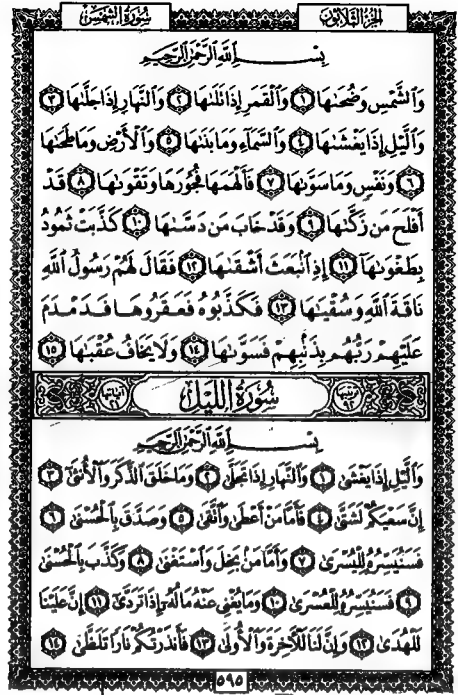 سُورَةُ الشَّمْسِ
الجُزْءُ الثَّلَاثُونَ
بِسْمِ اللَّهِ الرَّحْمَٰنِ الرَّحِيمِ
وَالشَّمْسِ وَضُحَىٰهَا ١ وَالْقَمَرِ إِذَا تَلَىٰهَا ٢ وَالنَّهَارِ إِذَا جَلَّىٰهَا ٣
وَاللَّيْلِ إِذَا يَغْشَىٰهَا ٤ وَالسَّمَاءِ وَمَا بَنَىٰهَا ٥ وَالْأَرْضِ وَمَا طَحَىٰهَا
٦ وَنَفْسٍ وَمَا سَوَّىٰهَا ٧ فَأَلْهَمَهَا فُجُورَهَا وَتَقْوَىٰهَا ٨ قَدْ
أَفْلَحَ مَن زَكَّىٰهَا ٩ وَقَدْ خَابَ مَن دَسَّىٰهَا ١٠ كَذَّبَتْ ثَمُودُ
بِطَغْوَىٰهَا ١١ إِذِ انۢبَعَثَ أَشْقَىٰهَا ١٢ فَقَالَ لَهُمْ رَسُولُ اللَّهِ
نَاقَةَ اللَّهِ وَسُقْيَٰهَا ١٣ فَكَذَّبُوهُ فَعَقَرُوهَا فَدَمْدَمَ
عَلَيْهِمْ رَبُّهُم بِذَنۢبِهِمْ فَسَوَّىٰهَا ١٤ وَلَا يَخَافُ عُقْبَٰهَا ١٥
سُورَةُ اللَّيْلِ
بِسْمِ اللَّهِ الرَّحْمَٰنِ الرَّحِيمِ
وَاللَّيْلِ إِذَا يَغْشَىٰ ١ وَالنَّهَارِ إِذَا تَجَلَّىٰ ٢ وَمَا خَلَقَ الذَّكَرَ وَالْأُنثَىٰ ٣
إِنَّ سَعْيَكُمْ لَشَتَّىٰ ٤ فَأَمَّا مَنْ أَعْطَىٰ وَاتَّقَىٰ ٥ وَصَدَّقَ بِالْحُسْنَىٰ ٦
فَسَنُيَسِّرُهُ لِلْيُسْرَىٰ ٧ وَأَمَّا مَنۢ بَخِلَ وَاسْتَغْنَىٰ ٨ وَكَذَّبَ بِالْحُسْنَىٰ
٩ فَسَنُيَسِّرُهُ لِلْعُسْرَىٰ ١٠ وَمَا يُغْنِي عَنْهُ مَالُهُ إِذَا تَرَدَّىٰ ١١ إِنَّ عَلَيْنَا
لَلْهُدَىٰ ١٢ وَإِنَّ لَنَا لَلْآخِرَةَ وَالْأُولَىٰ ١٣ فَأَنذَرْتُكُمْ نَارًا تَلَظَّىٰ ١٤
٥٩٥